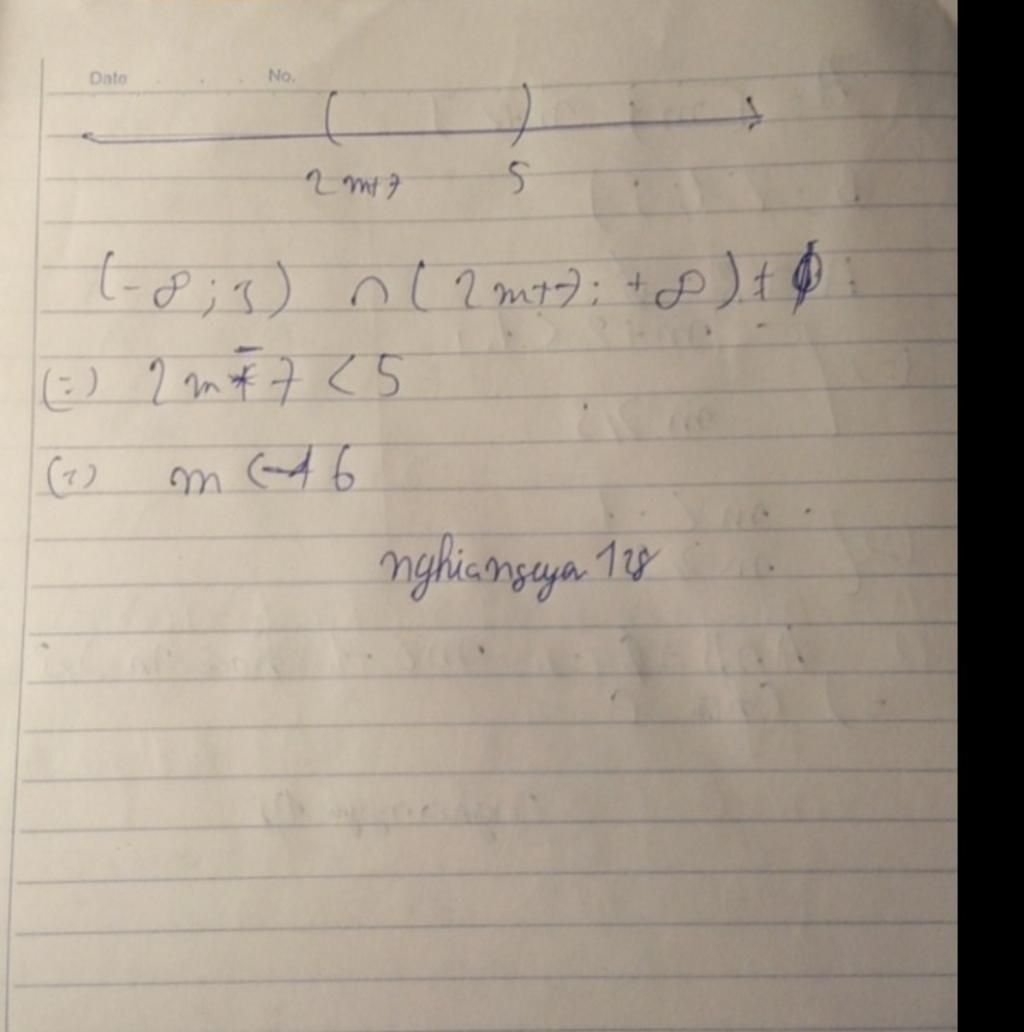 Date No.
2m+7 5
(-∞; 5) ∩ (2m+7; +∞) ≠ ∅
(=) 2m-7 < 5
(=) m < 6
nghianguya 128